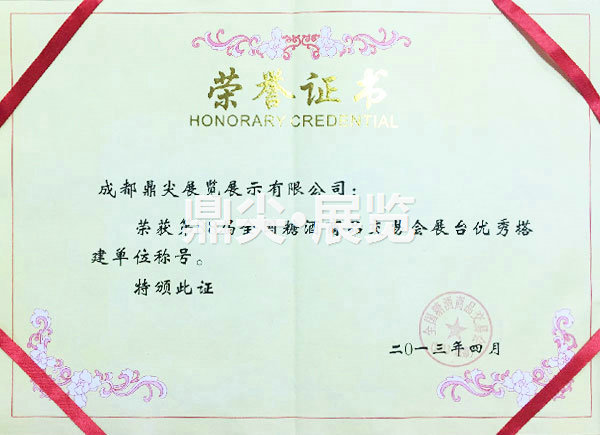 荣誉证书
HONORARY CREDENTIAL
成都鼎尖展览展示有限公司：
鼎尖·展览
荣获第 全国糖酒 会展台优秀搭
建单位称号。
特颁此证
全国糖酒商品交易
二〇一三年四月